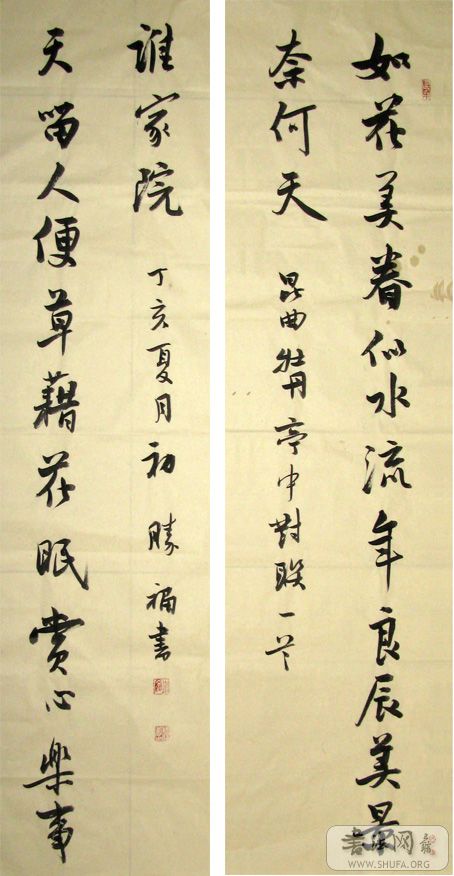 如花美眷似水流年良辰美景
奈何天
昆曲牡丹亭中對联一
天留人便草藉花眠賞心樂事
誰家院
丁亥夏月初 勝福書
WWW.SHUFA.ORG